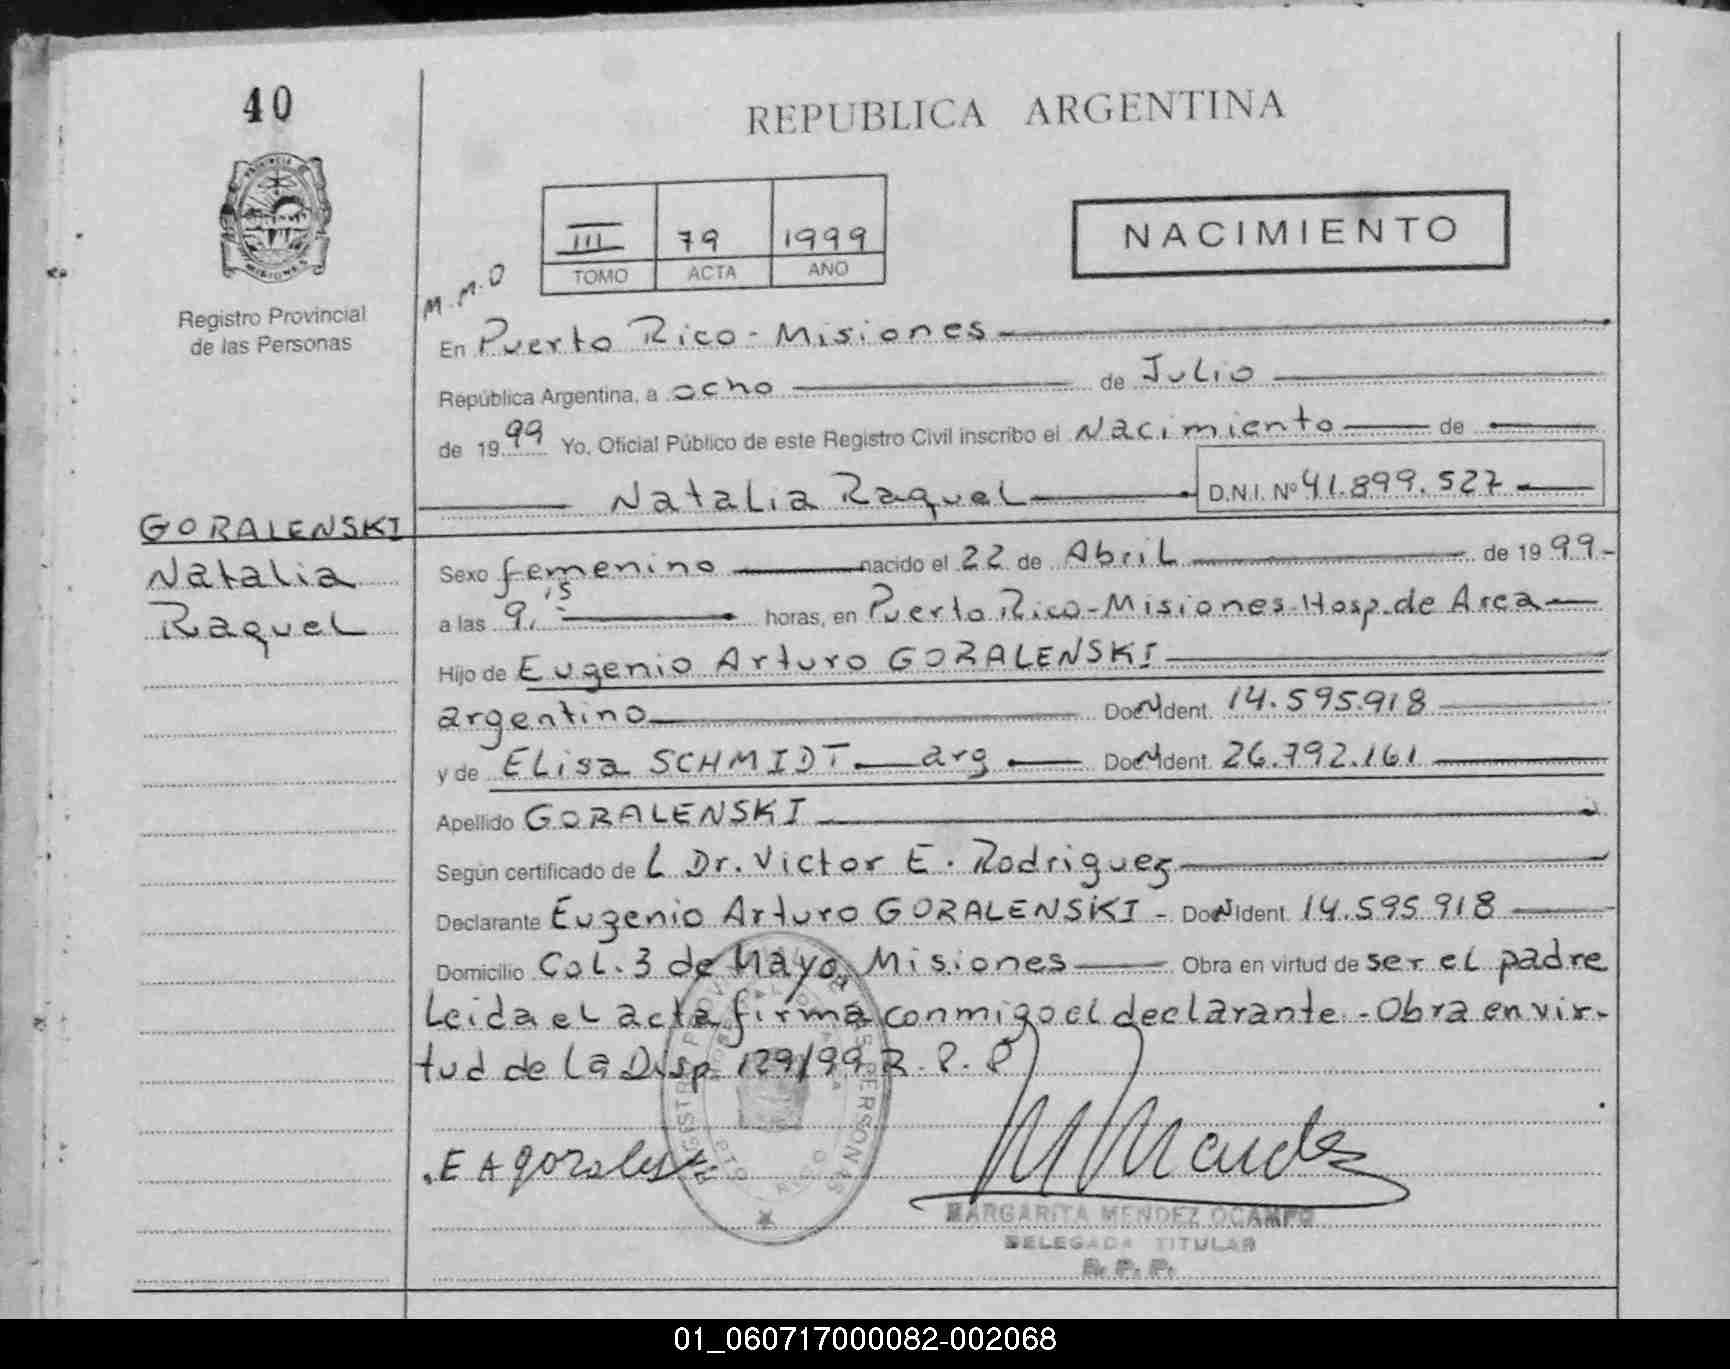 40
REPUBLICA ARGENTINA
PROVINCIA
MISIONES
Registro Provincial
de las Personas
III 79 1999
TOMO ACTA AÑO
NACIMIENTO
M.M.O
En Puerto Rico - Misiones
República Argentina, a ocho de Julio
de 1999 Yo, Oficial Público de este Registro Civil inscribo el Nacimiento de
Natalia Raquel D.N.I. Nº 41.899.527
GORALENSKI
Natalia
Raquel
Sexo femenino nacido el 22 de Abril de 1999-
a las 9,15 horas, en Puerto Rico-Misiones-Hosp. de Area
Hijo de Eugenio Arturo GORALENSKI
argentino Doc. Ident. 14.595.918
y de Elisa SCHMIDT arg Doc. Ident. 26.792.161
Apellido GORALENSKI
Según certificado de L Dr. Victor E. Rodriguez
Declarante Eugenio Arturo GORALENSKI - Doc. Ident. 14.595.918
Domicilio Col. 3 de Mayo, Misiones Obra en virtud de ser el padre
Leida el acta firma conmigo el declarante.-Obra en vir-
tud de la Disp. 129/99 R.P.P
E A Gorales
M Mendez
MARGARITA MENDEZ OCAMPO
DELEGADA TITULAR
R. P. P.
01_060717000082-002068